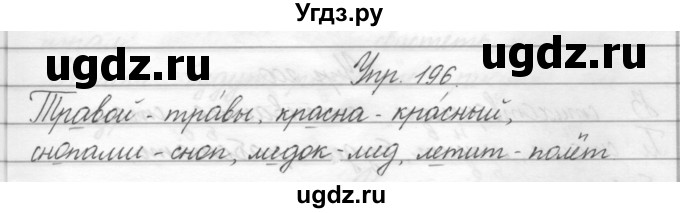 Угдз.ру
ugdz.ru ugdz.ru
Упр. 196.
Травой - тра́вы, красна - кра́сный,
снопами - сноп, медок - мёд, летит - полёт
ugdz.ru ugdz.ru
ugdz.ru